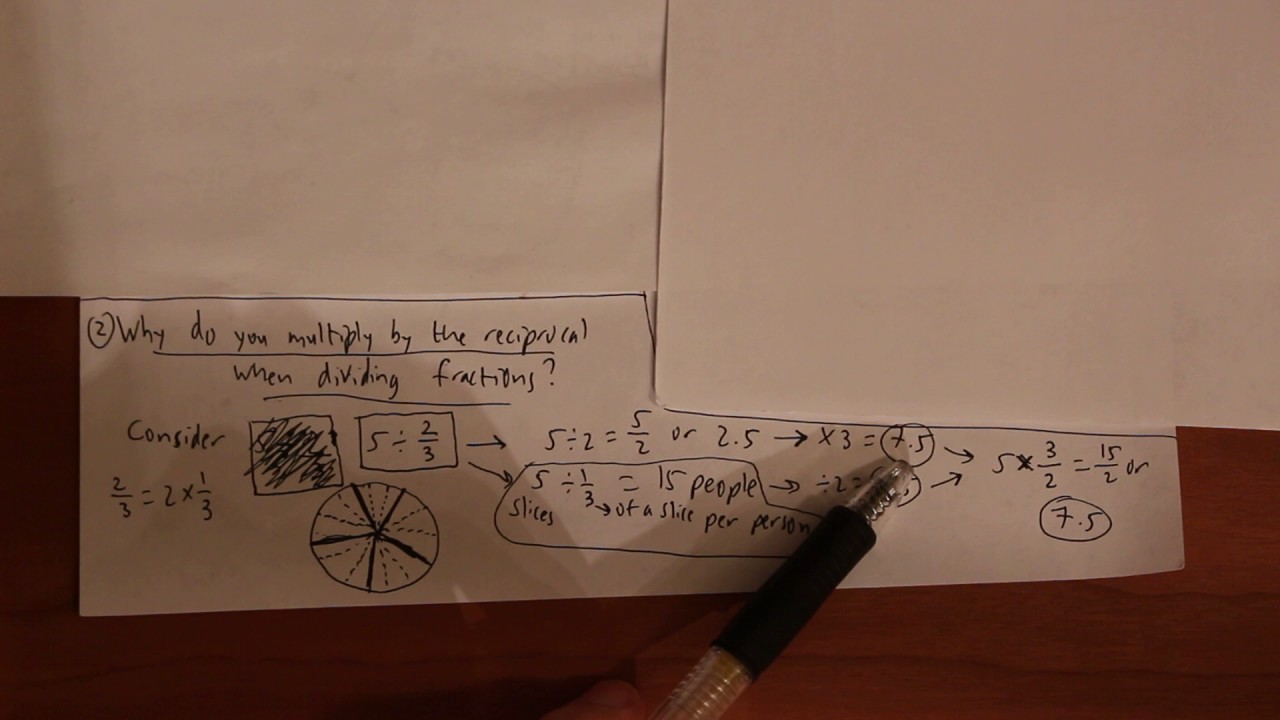 ② Why do you multiply by the reciprocal
when dividing fractions?
Consider
5 ÷ 2/3 → 5 ÷ 2 = 5/2 or 2.5 → × 3 = 7.5 → 5 × 3/2 = 15/2 or
7.5
2/3 = 2 × 1/3
→ 5 ÷ 1/3 = 15 people → ÷ 2 = →
slices → of a slice per person